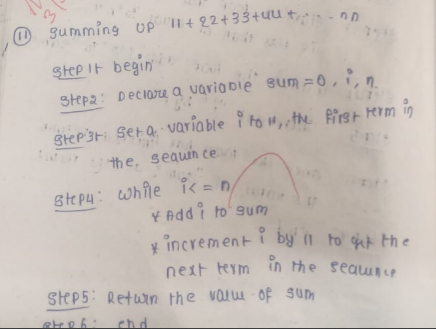 (11) summing up 11+22+33+44+ . . . . nn
Step 1: begin
Step2: Declare a variable sum=0, i, n.
Step3: set a variable i to 11, the first term in
the sequence
Step4: while i<=n
* Add i to sum
* increment i by 11 to get the
next term in the sequence
Step5: Return the value of sum
Step6: end